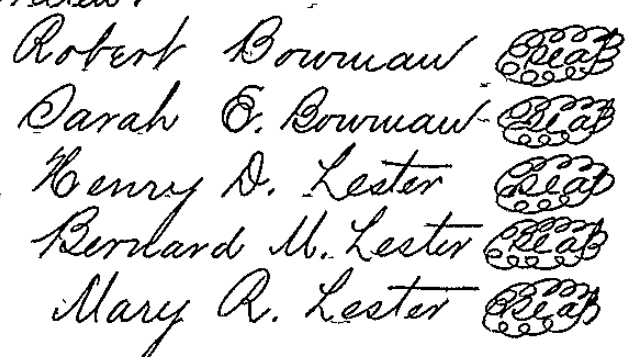 Robert Bowman Seal
Sarah E. Bowman Seal
Henry D. Lester Seal
Bernard M. Lester Seal
Mary R. Lester Seal